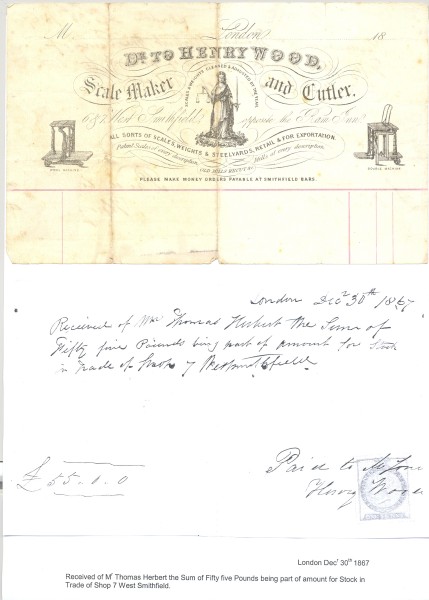 M London 18
Dr. TO HENRY WOOD,
Scale Maker and Cutler.
SCALES & WEIGHTS CLEANED & ADJUSTED BY THE YEAR
6 & 7, West Smithfield, opposite the Ram Inn.
ALL SORTS OF SCALES, WEIGHTS & STEELYARDS, RETAIL & FOR EXPORTATION.
Patent Scales of every description, Mills of every description,
OLD MILLS RECUT &c.
PLEASE MAKE MONEY ORDERS PAYABLE AT SMITHFIELD BARS.
London Decr 30th 1867
Received of Mr Thomas Herbert the Sum of
Fifty five Pounds being part of amount for Stock
in Trade of Shop 7 West Smithfield
£55-0-0
Paid to
Henry Wood
London Decr 30th 1867
Received of Mr Thomas Herbert the Sum of Fifty five Pounds being part of amount for Stock in
Trade of Shop 7 West Smithfield.